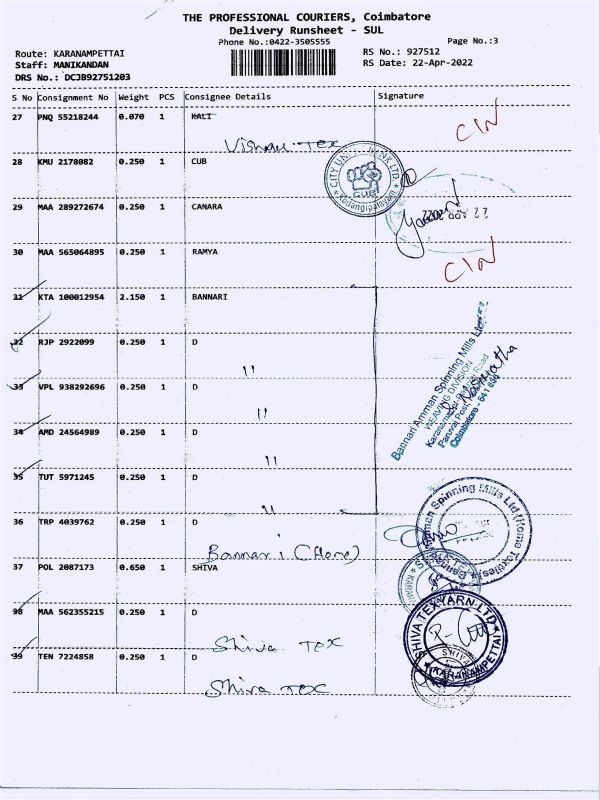 THE PROFESSIONAL COURIERS, Coimbatore
Delivery Runsheet - SUL
Phone No.:0422-3505555 Page No.:3
Route: KARANAMPETTAI RS No.: 927512
Staff: MANIKANDAN RS Date: 22-Apr-2022
DRS No.: DCJB92751203
S No Consignment No Weight PCS Consignee Details Signature
27 PNQ 55218244 0.070 1 KALI CIN
Vishnu Tex
28 KMU 2178082 0.250 1 CUB
CITY UNION BANK LTD.
CUB
Kodangipalayam
29 MAA 289272674 0.250 1 CANARA
22 APR 2022
30 MAA 565064895 0.250 1 RAMYA CIN
31 KTA 100012954 2.150 1 BANNARI
32 RJP 2922099 0.250 1 D
"
33 VPL 938292696 0.250 1 D
"
34 AMD 24564989 0.250 1 D
"
35 TUT 5971245 0.250 1 D
"
Bannari Amman Spinning Mills Ltd.,
WEAVING DIVISION
Karanampettai Road
Paruvai Post,
Coimbatore - 641
36 TRP 4039762 0.250 1 D
Bannari (Home)
Amman Spinning Mills Ltd (Home Textiles)
37 POL 2087173 0.650 1 SHIVA
38 MAA 562355215 0.250 1 D
Shiva Tex
SHIVA TEXYARN LTD
KARANAMPETTAI
39 TEN 7224858 0.250 1 D
Shiva Tex